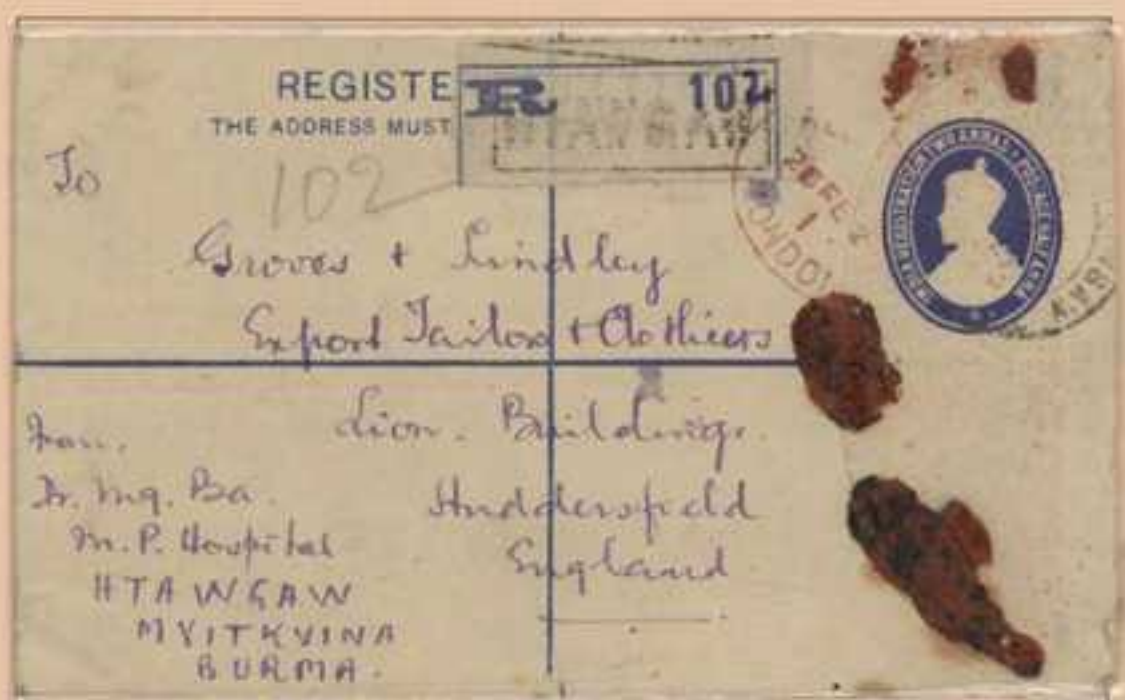 REGISTE
THE ADDRESS MUST
R 102
HTAWGAW
102
LONDON
To
Groves + Lindley
Export Tailors + Clothiers
Lion. Buildings.
Huddersfield
England
From.
Dr. Mg. Ba.
M. P. Hospital
HTAWGAW
MYITKYINA
BURMA.